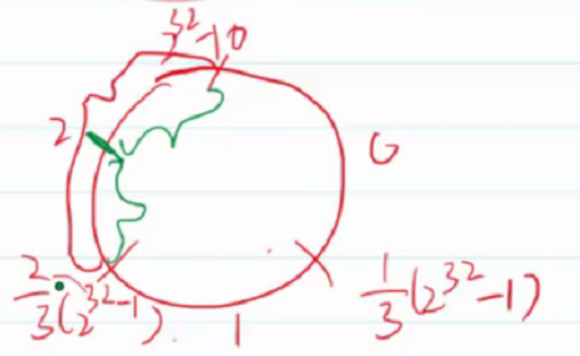 3² -1 0
2
0
2/3(2³²-1)
1
1/3(2³²-1)